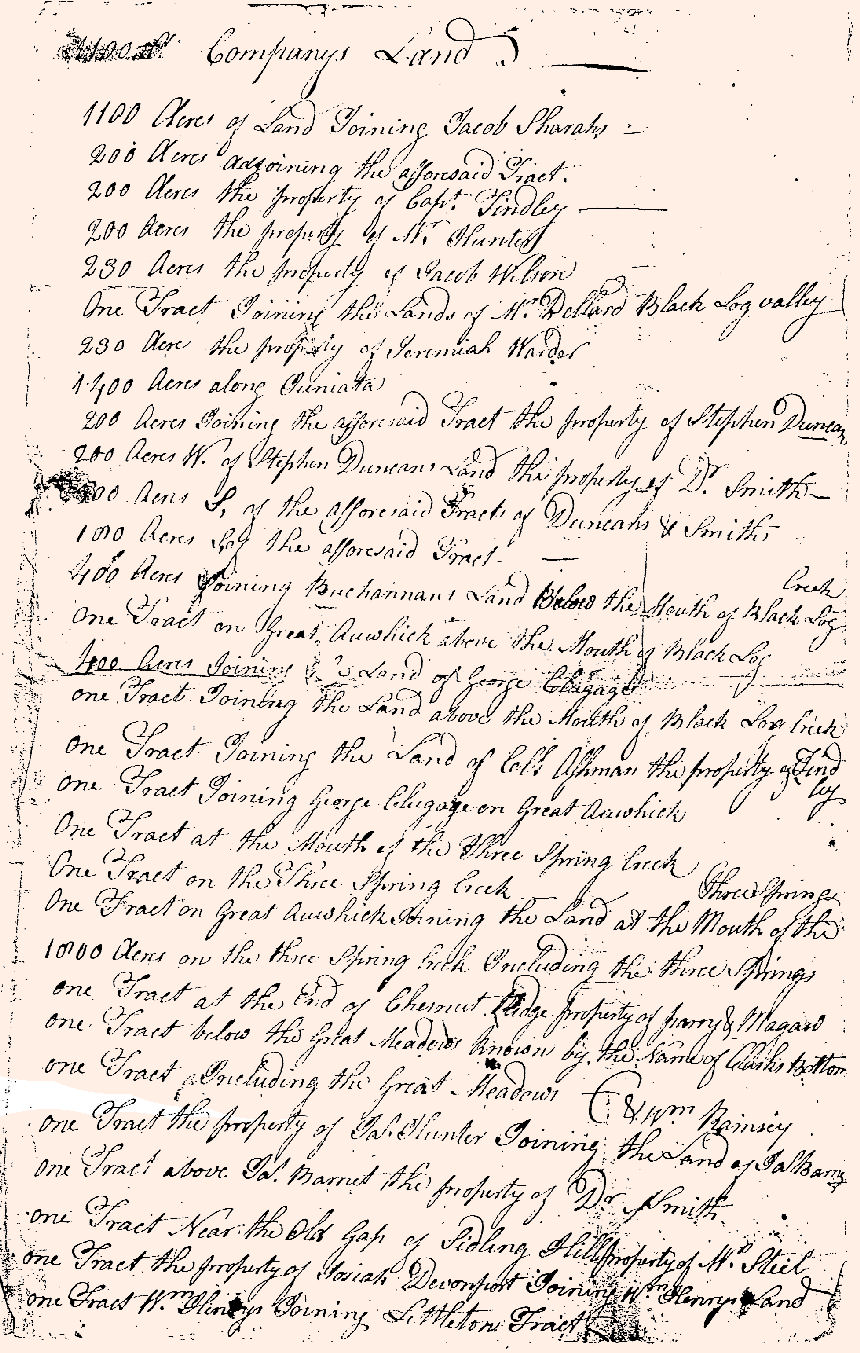 Companys Land
1100 Acres of Land Joining Jacob Sharahs
200 Acres adjoining the afforesaid Tract.
200 Acres the property of Capt. Findley
200 Acres the property of Mr Hunter
230 Acres the property of Jacob Wilson
One Tract Joining the Lands of Mr. Dollard Black Log valley
230 Acre the property of Jeremiah Warder
1400 Acres along Juniata
200 Acres Joining the afforesaid Tract the property of Stephen Duncan
200 Acres W. of Stephen Duncans Land the property of Dr. Smith
Acres S, of the afforesaid Tracts of Duncans & Smiths
1000 Acres the afforesaid Tract
400 Acres Joining Buchannans Land Below the Mouth of Black Log Creek
one Tract on Great Auwhick above the Mouth of Black Log
400 Acres Joining Land of George Clugage
one Tract Joining the Land above the Mouth of Black Log Creek
one Tract Joining the Land of Coll Ashman the property of Find
ly
one Tract Joining George Clugage on Great Auwhick
One Tract at the Mouth of the three Spring Creek
One Tract on the Three Spring Creek
One Tract on Great Auwhick Joining the Land at the Mouth of the three Springs
1000 Acres on the three Spring Creek Including the three Springs
one Tract at the End of Chesnut Ridge property of Parry & Magaw
one Tract below the Great Meadows known by the Name of Clarks Bottom
one Tract Including the Great Meadows
& Wm Ramsey
one Tract the property of Jas. Hunter Joining the Land of Jas Barny
one Tract above Jas. Barnet the property of Dr Smith
one Tract Near the Old Gap of Sidling Hill property of Mr. Steel
one Tract the property of Josiah Devonport Joining Wm Henrys Land
one Tract Wm Henrys Joining Littleton Tract